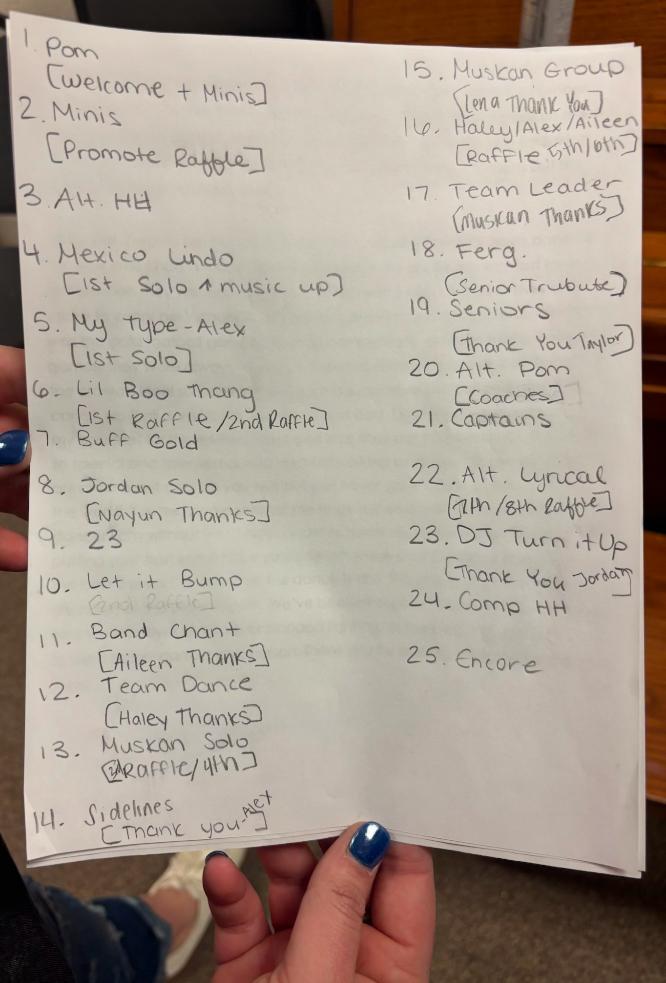 1. Pom
[Welcome + Minis]
2. Minis
[Promote Raffle]
3. Alt. HH
4. Mexico Lindo
[1st Solo ↑ music up]
5. My Type - Alex
[1st Solo]
6. Lil Boo Thang
[1st Raffle/2nd Raffle]
7. Buff Gold
8. Jordan Solo
[Nayun Thanks]
9. 23
10. Let it Bump
[2nd Raffle]
11. Band Chant
[Aileen Thanks]
12. Team Dance
[Haley Thanks]
13. Muskan Solo
Raffle/4th]
14. Sidelines
[Thank you-Alex]
15. Muskan Group
[Lena Thank You]
16. Haley/Alex/Aileen
[Raffle 5th/6th]
17. Team Leader
[Muskan Thanks]
18. Ferg.
[Senior Trubute]
19. Seniors
[Thank You Taylor]
20. Alt. Pom
[Coaches]
21. Captains
22. Alt. Lyrical
[7th/8th Raffle]
23. DJ Turn it Up
[Thank You Jordan]
24. Comp HH
25. Encore